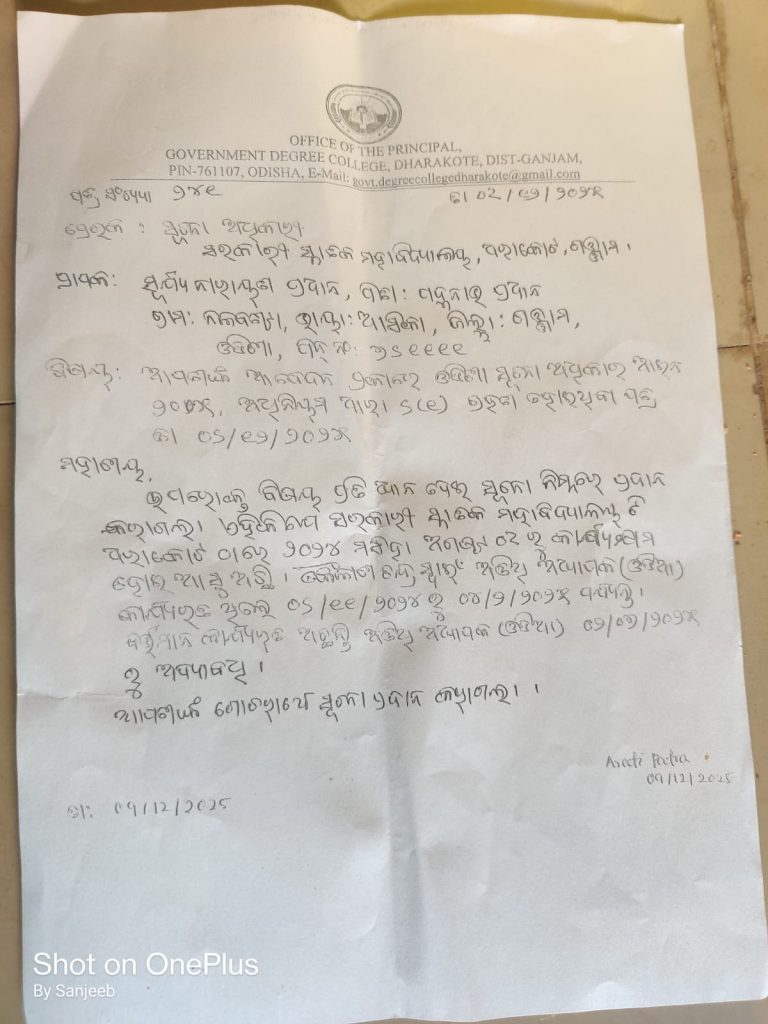 OFFICE OF THE PRINCIPAL,
GOVERNMENT DEGREE COLLEGE, DHARAKOTE, DIST-GANJAM,
PIN-761107, ODISHA, E-Mail: govt.degreecollegedharakote@gmail.com
ପତ୍ର ସଂଖ୍ୟା ୨୪୧
ତା ୦୨/୧୨/୨୦୨୫
ପ୍ରେରକ : ସୂଚନା ଅଧିକାରୀ
ସରକାରୀ ସ୍ନାତକ ମହାବିଦ୍ୟାଳୟ, ଧରାକୋଟ, ଗଞ୍ଜାମ ।
ପ୍ରାପକ: ସୂର୍ଯ୍ୟ ନାରାୟଣ ପ୍ରଧାନ, ପିତା: ପଦ୍ମନାଭ ପ୍ରଧାନ
ଗ୍ରାମ: ନଳବଣ୍ଟା, ଭାୟା: ଆସିକା, ଜିଲ୍ଲା: ଗଞ୍ଜାମ,
ଓଡିଶା, ପିନ୍ ନଂ: ୭୬୧୧୧୧
ବିଷୟ: ଆପଣଙ୍କ ଆବେଦନ ପ୍ରକାରେ ଓଡିଶା ସୂଚନା ଅଧିକାର ଆଇନ
୨୦୦୫, ଅଧିନିୟମ ଧାରା ୬(୧) ପତ୍ର
ତା ୦୬/୧୨/୨୦୨୫
ମହାଶୟ,
ଉପରୋକ୍ତ ବିଷୟ ପ୍ରତି ଧ୍ୟାନ ଦେଇ ସୂଚନା ନିମ୍ନରେ ପ୍ରଦାନ
କରାଗଲା। ସରକାରୀ ସ୍ନାତକ ମହାବିଦ୍ୟାଳୟ ଟି
ଧରାକୋଟ ଠାରେ ୨୦୨୪ ମସିହା ଅଗଷ୍ଟ ୦୧ ରୁ କାର୍ଯ୍ୟକ୍ଷମ
ହୋଇ ଆସୁ ଅଛି । ସ୍ୱାଇଁ ଅତିଥି ଅଧ୍ୟାପକ (ଓଡିଆ)
କାର୍ଯ୍ୟରତ ଥିଲେ ୦୬/୧୧/୨୦୨୪ ରୁ ୦୪/୨/୨୦୨୫ ପର୍ଯ୍ୟନ୍ତ।
ବର୍ତ୍ତମାନ କାର୍ଯ୍ୟରତ ଅଛନ୍ତି ଅତିଥି ଅଧ୍ୟାପକ (ଓଡିଆ) ୦୨/୦୭/୨୦୨୫
ରୁ ଅଦ୍ୟାବଧି ।
ଆପଣଙ୍କ ଗୋଚରାର୍ଥେ ସୂଚନା ପ୍ରଦାନ କରାଗଲା ।
Areeti Patra
09/12/2025
ତା: 09/12/2025
Shot on OnePlus
By Sanjeeb